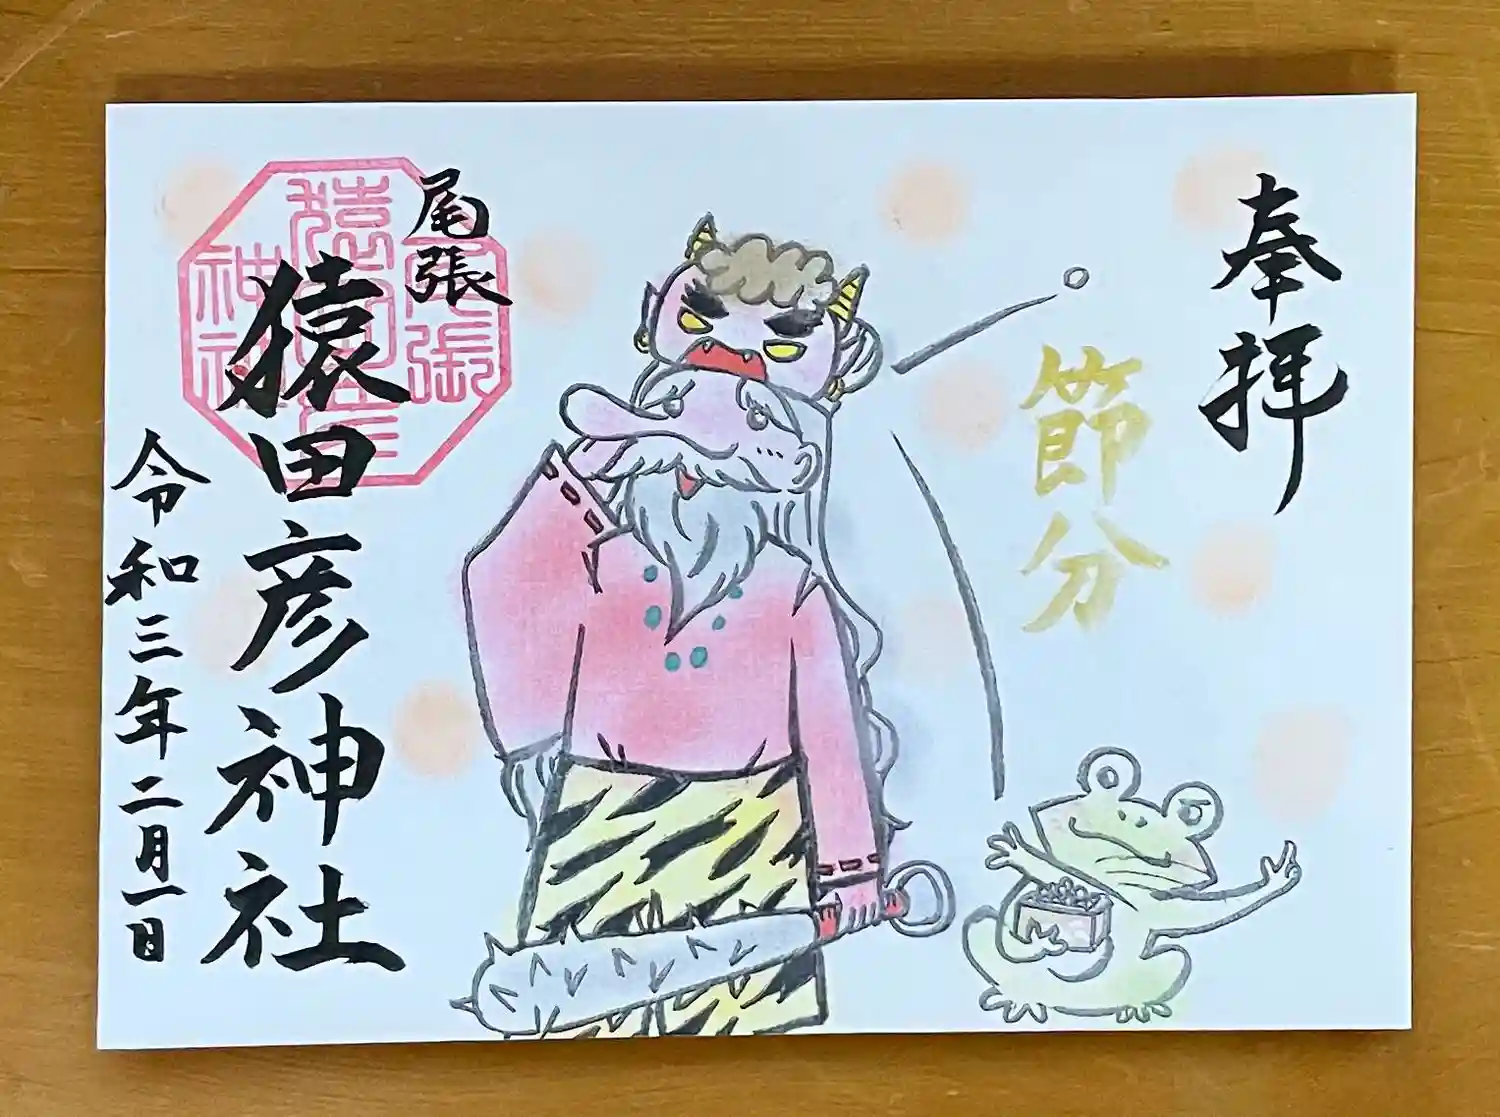 奉拝
節分
尾張
猿田彦神社
令和三年二月一日
尾張
猿田彦
神社